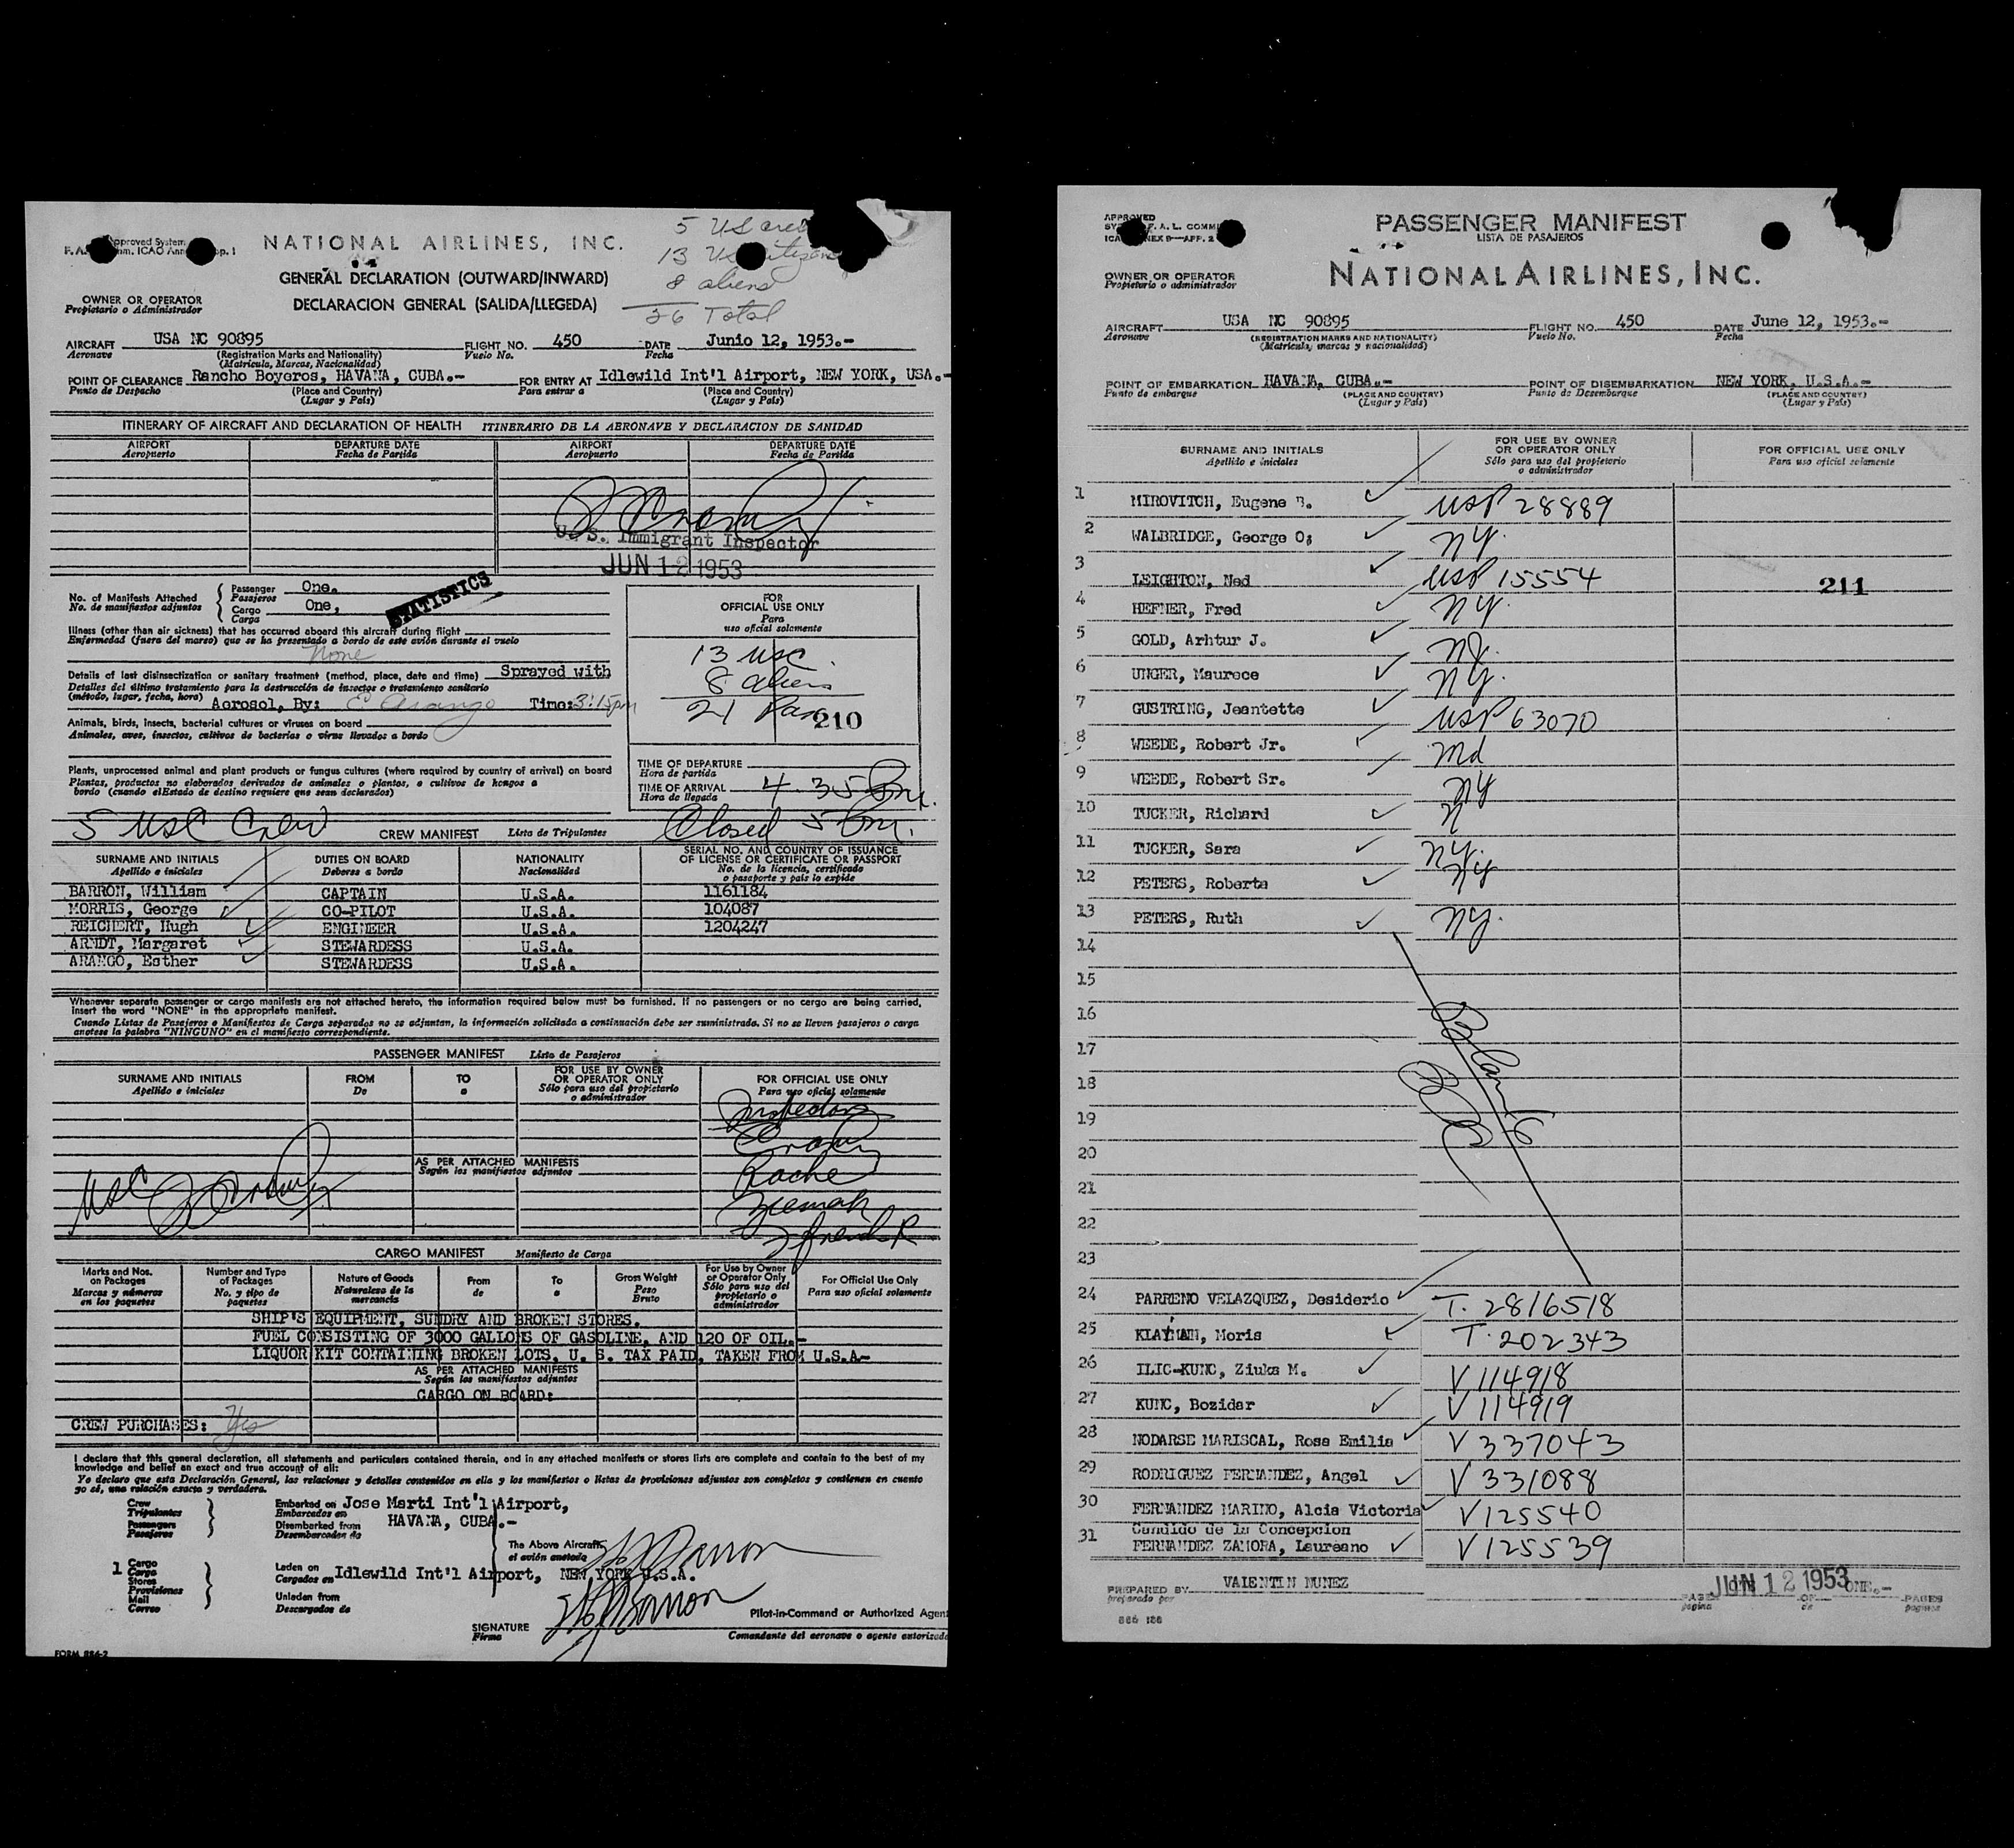 5 US crew
13 US citizens
8 aliens
26 Total
NATIONAL AIRLINES, INC.
GENERAL DECLARATION (OUTWARD/INWARD)
DECLARACION GENERAL (SALIDA/LLEGEDA)
OWNER OR OPERATOR
Propietario o Administrador
AIRCRAFT USA NC 90895 FLIGHT NO. 450 DATE Junio 12, 1953.-
Aeronave (Registration Marks and Nationality) Vuelo No. Fecha
(Matrícula, Marcas, Nacionalidad)
POINT OF CLEARANCE Rancho Boyeros, HAVANA, CUBA.- FOR ENTRY AT Idlewild Int'l Airport, NEW YORK, USA.-
Punto de Despacho (Place and Country) Para entrar a (Place and Country)
(Lugar y País) (Lugar y País)
ITINERARY OF AIRCRAFT AND DECLARATION OF HEALTH ITINERARIO DE LA AERONAVE Y DECLARACION DE SANIDAD
AIRPORT DEPARTURE DATE AIRPORT DEPARTURE DATE
Aeropuerto Fecha de Partida Aeropuerto Fecha de Partida
U. S. Immigrant Inspector
JUN 12 1953
No. of Manifests Attached Passenger One.
No. de manifiestos adjuntos Pasajeros
Cargo One,
Carga
STATISTICS
Illness (other than air sickness) that has occurred aboard this aircraft during flight
Enfermedad (fuera del mareo) que se ha presentado a bordo de esté avión durante el vuelo
None
Details of last disinsectization or sanitary treatment (method, place, date and time) Sprayed with
Detalles del último tratamiento para la destrucción de insectos o tratamiento sanitario
(método, lugar, fecha, hora) Aerosol, By: E Arango Time: 3:15pm
Animals, birds, insects, bacterial cultures or viruses on board
Animales, aves, insectos, cultivos de bacterias o virus llevados a bordo
Plants, unprocessed animal and plant products or fungus cultures (where required by country of arrival) on board
Plantas, productos no elaborados derivados de animales o plantas, o cultivos de hongos a
bordo (cuando elEstado de destino requiere que sean declarados)
FOR
OFFICIAL USE ONLY
Para
uso oficial solamente
13 USC.
8 aliens
21 Pax
210
TIME OF DEPARTURE
Hora de partida
TIME OF ARRIVAL 4.35 Pm.
Hora de llegada
5 USC Crew CREW MANIFEST Lista de Tripulantes Closed 5 Pm.
SURNAME AND INITIALS DUTIES ON BOARD NATIONALITY SERIAL NO. AND COUNTRY OF ISSUANCE
OF LICENSE OR CERTIFICATE OR PASSPORT
Apellido e iniciales Deberes a bordo Nacionalidad No. de la licencia, certificado
o pasaporte y país lo expide
BARRON, William CAPTAIN U.S.A. 1161184
MORRIS, George CO-PILOT U.S.A. 104087
REICHERT, Hugh ENGINEER U.S.A. 1204247
ARNDT, Margaret STEWARDESS U.S.A.
ARANGO, Esther STEWARDESS U.S.A.
Whenever separate passenger or cargo manifests are not attached hereto, the information required below must be furnished. If no passengers or no cargo are being carried,
insert the word "NONE" in the appropriate manifest.
Cuando Listas de Pasajeros o Manifiestos de Carga separados no se adjuntan, la información solicitada a continuación debe ser suministrada. Si no se lleven pasajeros o carga
anotese la palabra "NINGUNO" en el manifiesto correspondiente.
PASSENGER MANIFEST Lista de Pasajeros
SURNAME AND INITIALS FROM TO FOR USE BY OWNER
OR OPERATOR ONLY FOR OFFICIAL USE ONLY
Apellido e iniciales De a Sólo para uso del propietario
o administrador Para uso oficial solamente
Inspectors
AS PER ATTACHED MANIFESTS
Según los manifiestos adjuntos
Roche
USC
CARGO MANIFEST Manifiesto de Carga
Marks and Nos.
on Packages
Marcas y números
en los paquetes
Number and Type
of Packages
No. y tipo de
paquetes
Nature of Goods
Naturaleza de la
mercancia
From
de
To
a
Gross Weight
Peso
Bruto
For Use by Owner
or Operator Only
Sólo para uso del
propietario o
administrador
For Official Use Only
Para uso oficial solamente
SHIP'S EQUIPMENT, SUNDRY AND BROKEN STORES.
FUEL CONSISTING OF 3000 GALLONS OF GASOLINE, AND 120 OF OIL.-
LIQUOR KIT CONTAINING BROKEN LOTS, U. S. TAX PAID, TAKEN FROM U.S.A-
AS PER ATTACHED MANIFESTS
Según los manifiestos adjuntos
CARGO ON BOARD:
CREW PURCHASES: Yes
I declare that this general declaration, all statements and particulars contained therein, and in any attached manifests or stores lists are complete and contain to the best of my
knowledge and belief an exact and true account of all:
Yo declaro que esta Declaración General, las relaciones y detalles contenidos en ella y los manifiestos o listas de provisiones adjuntos son completos y contienen en cuento
yo sé, una relación exacta y verdadera.
Crew
Tripulantes
Passengers
Pasajeros
Embarked on Jose Marti Int'l Airport,
Embarcados en
Disembarked from HAVANA, CUBA.-
Desembarcados de
The Above Aircraft
el avión anotado
1 Cargo
Carga
Stores
Provisiones
Mail
Correo
Laden on
Cargados en Idlewild Int'l Airport, NEW YORK U.S.A.
Unladen from
Descargados de
SIGNATURE
Firma
Pilot-in-Command or Authorized Agent
Comandante del aeronave o agente autorizado
FORM 886-2
PASSENGER MANIFEST
LISTA DE PASAJEROS
OWNER OR OPERATOR
Propietario o administrador
NATIONAL AIRLINES, INC.
AIRCRAFT USA NC 90895 FLIGHT NO. 450 DATE June 12, 1953.-
Aeronave (REGISTRATION MARKS AND NATIONALITY) Vuelo No. Fecha
(Matrícula, marcas y nacionalidad)
POINT OF EMBARKATION HAVANA, CUBA.- POINT OF DISEMBARKATION NEW YORK, U.S.A.-
Punto de embarque (PLACE AND COUNTRY) Punto de Desembarque (PLACE AND COUNTRY)
(Lugar y País) (Lugar y País)
SURNAME AND INITIALS FOR USE BY OWNER
OR OPERATOR ONLY FOR OFFICIAL USE ONLY
Apellido e iniciales Sólo para uso del propietario
o administrador Para uso oficial solamente
1 MIROVITCH, Eugene B. USP 28889
2 WALBRIDGE, George O; NY.
3 LEIGHTON, Ned USP 15554
211
4 HEFNER, Fred NY.
5 GOLD, Arhtur J. NY.
6 UNGER, Maurece NY.
7 GUSTRING, Jeantette USP 63070
8 WEEDE, Robert Jr. Md
9 WEEDE, Robert Sr. NY
10 TUCKER, Richard NY
11 TUCKER, Sara NY.
12 PETERS, Roberta NY
13 PETERS, Ruth NY.
14
15
16
17
18
19
20
21
22
23
24 PARRENO VELAZQUEZ, Desiderio T. 2816518
25 KLAYMAN, Moris T. 202343
26 ILIC-KUNC, Ziuka M. V 114918
27 KUNC, Bozidar V 114919
28 NODARSE MARISCAL, Rosa Emilia V 337043
29 RODRIGUEZ FERNANDEZ, Angel V 331088
30 FERNANDEZ MARINO, Alcia Victoria V 125540
Candido de la Concepcion
31 FERNANDEZ ZAMORA, Laureano V 125539
PREPARED BY VALENTIN NUNEZ
preparado por
JUN 12 1953
PAGE OF ONE.- PAGES
página de páginas
886 188